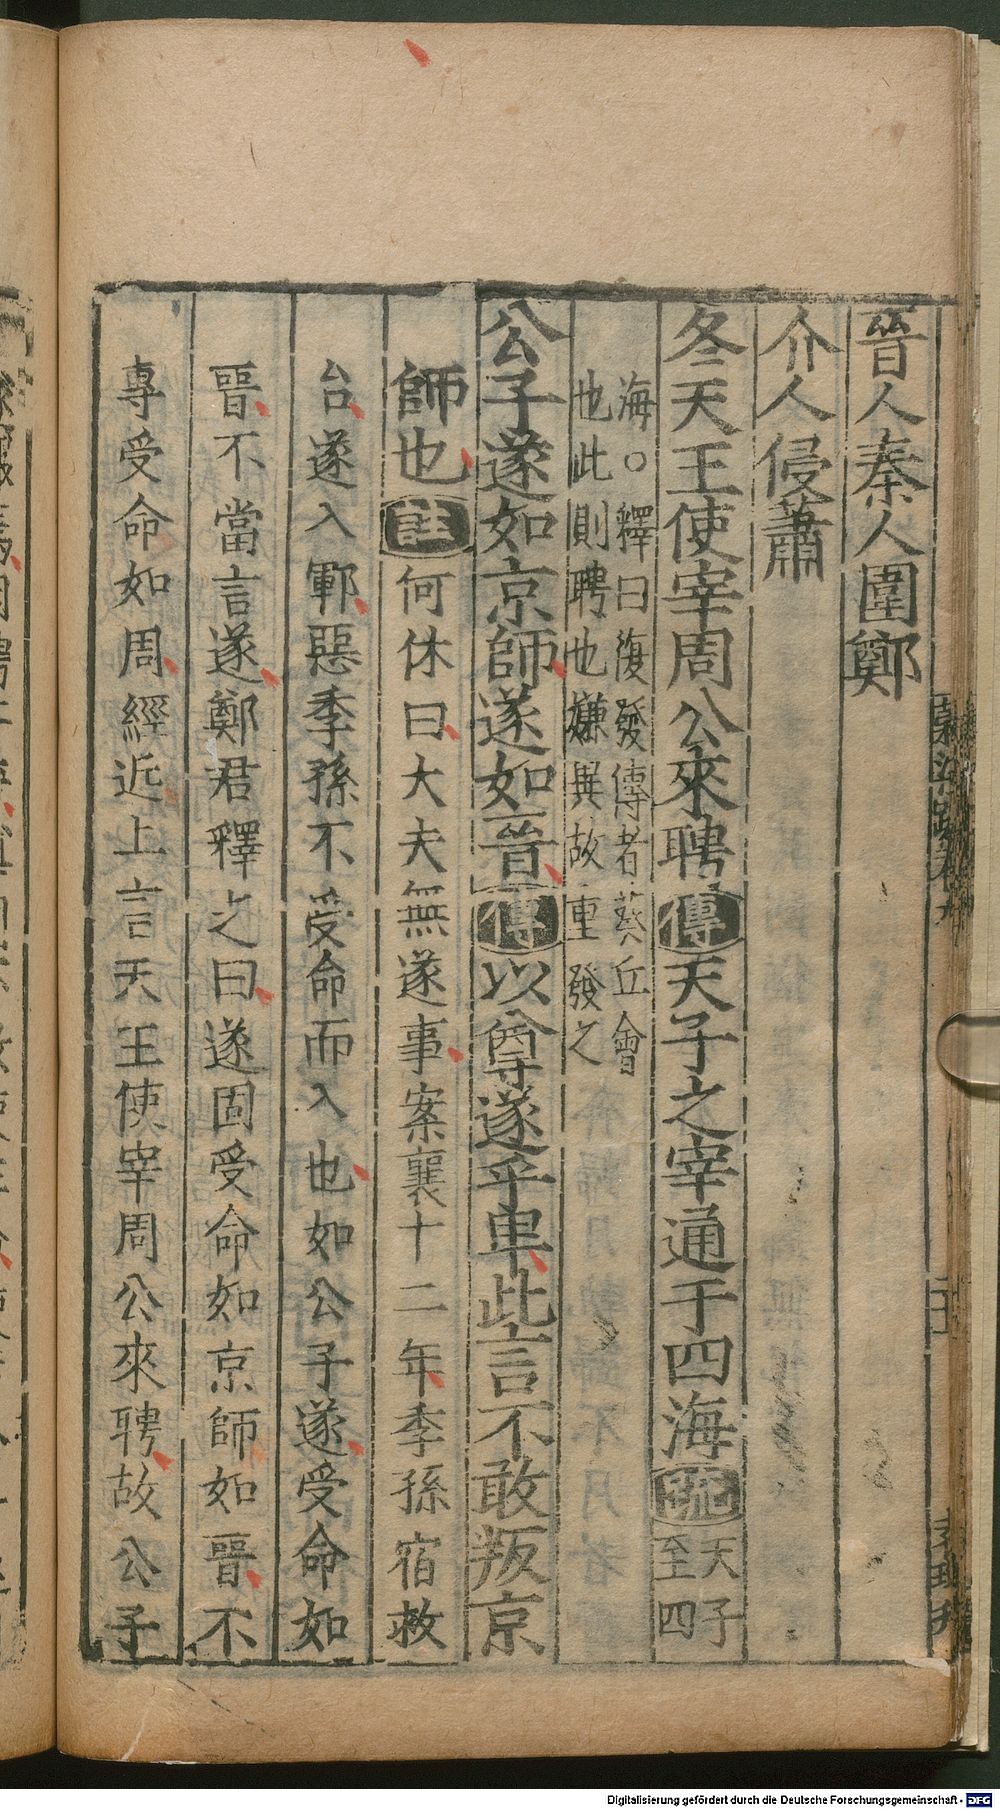 晉人秦人圍鄭
介人侵蕭
冬天王使宰周公來聘傳天子之宰通于四海疏天子
至四
海○釋曰復發傳者葵丘會
也此則聘也嫌異故重發之
公子遂如京師遂如晉傳以尊遂乎卑此言不敢叛京
師也註何休曰大夫無遂事案襄十二年季孫宿救
台遂入鄆惡季孫不受命而入也如公子遂受命如
晉不當言遂鄭君釋之曰遂固受命如京師如晉不
專受命如周經近上言天王使宰周公來聘故公子
Digitalisierung gefördert durch die Deutsche Forschungsgemeinschaft - DFG